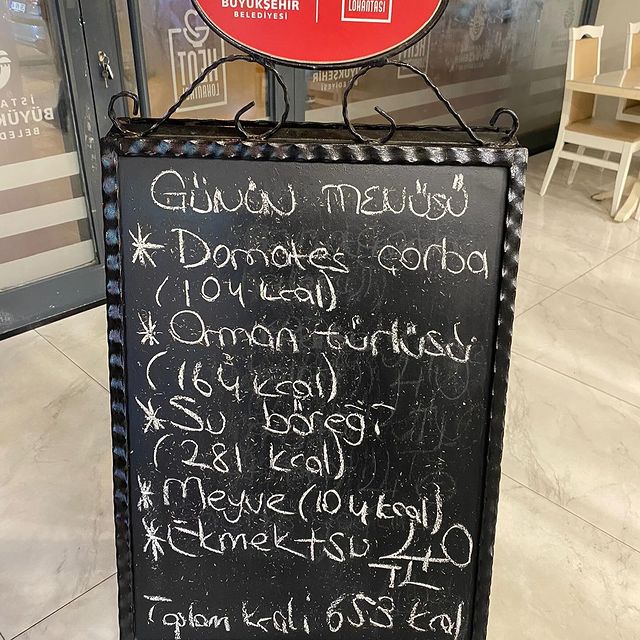 BÜYÜKŞEHİR
BELEDİYESİ
LOKANTASI
KENT
LOKANTASI
İSTA
BÜYÜK
BELED
Günün menüsü
* Domates çorba
(104 kcal)
* Orman türlüsü
(164 kcal)
* Su böreği
(281 kcal)
* Meyve (104 kcal)
* Ekmek + su 40
TL
Toplam kcali 653 kcal